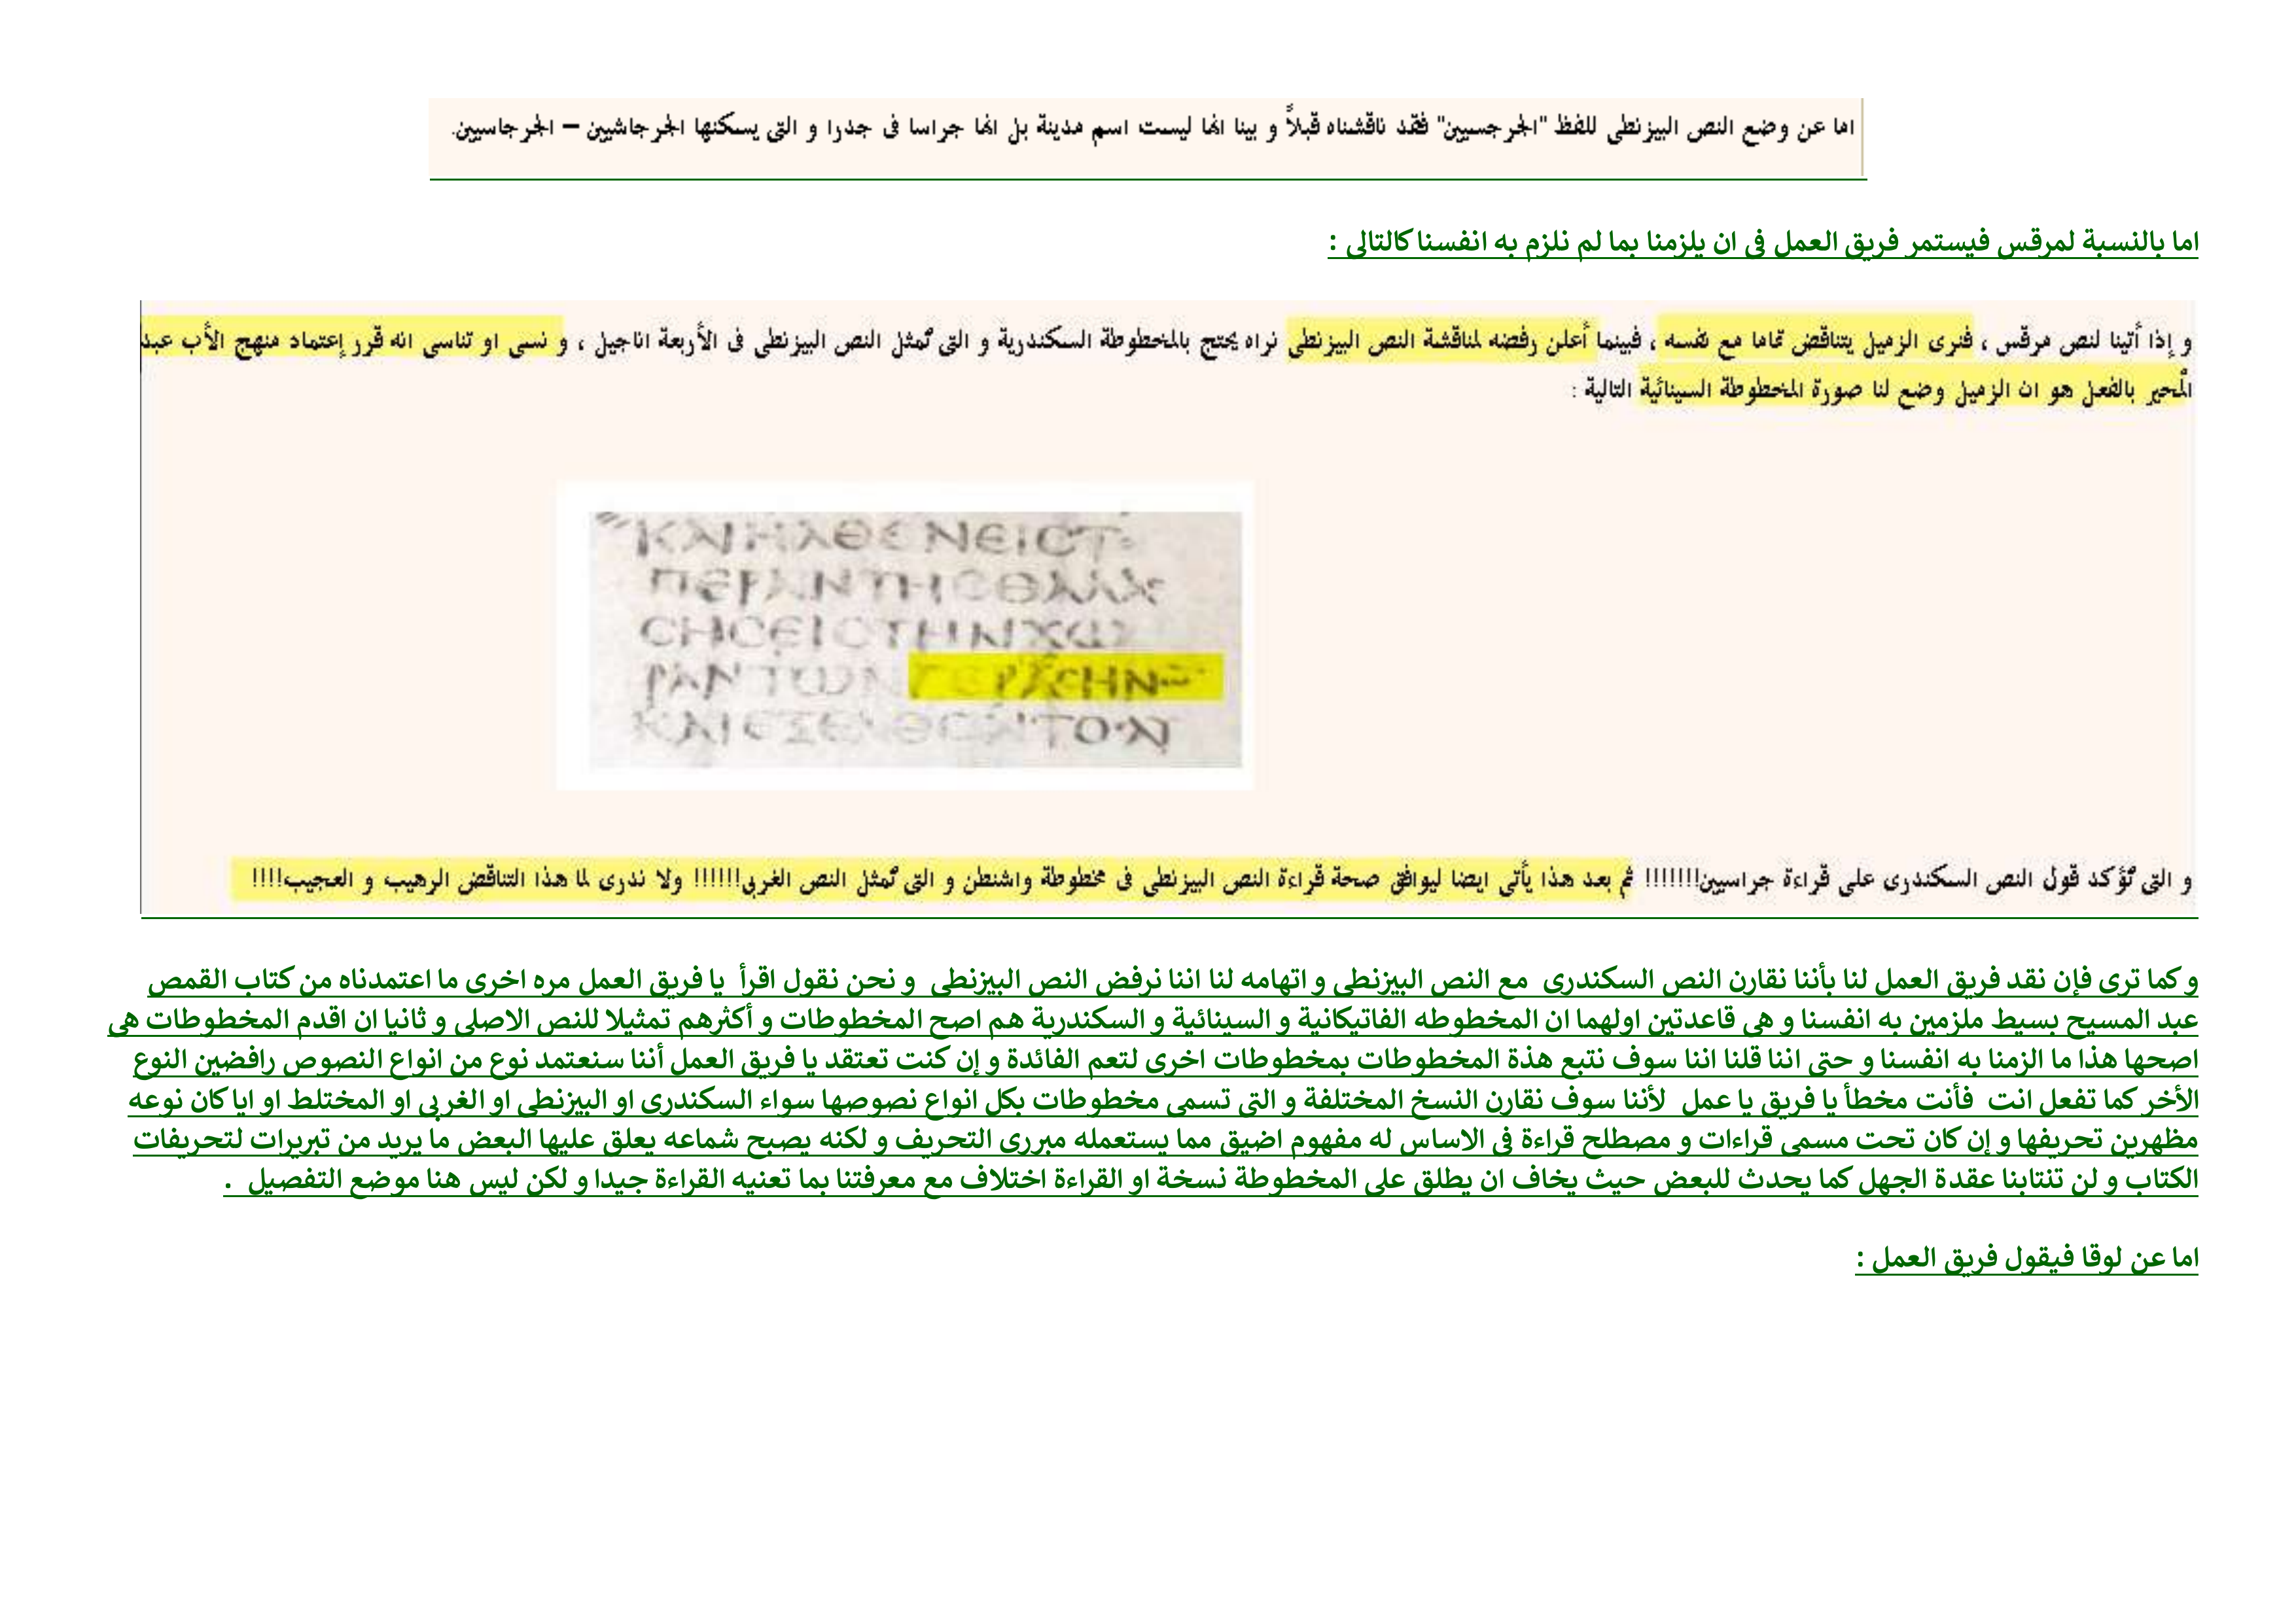 اما عن وضع النص البيزنطى للفظ "الجرجسيين" فقد ناقشناه قبلاً و بينا انها ليست اسم مدينة بل انها جراسا فى جدرا و التى يسكنها الجرجاشيين – الجرجاسيين.
اما بالنسبة لمرقس فيستمر فريق العمل فى ان يلزمنا بما لم نلزم به انفسنا كالتالى :
و إذا أتينا لنص مرقس ، فنرى الزميل يتناقض تماما مع نفسه ، فبينما أعلن رفضه لمناقشة النص البيزنطى نراه يحتج بالمخطوطة السكندرية و التى تُمثل النص البيزنطى فى الأربعة اناجيل ، و نسى او تناسى انه قرر إعتماد منهج الأب عبد
المُحير بالفعل هو ان الزميل وضع لنا صورة المخطوطة السينائية التالية :
ΚΑΙΗΛΘΕΝΕΙϹΤ
ΠΕΡΑΝΤΗϹΘΑΛΑϹ
ϹΗϹΕΙϹΤΗΝΧΩ
ΡΑΝΤΩΝΓΕΡΑϹΗΝ
ΚΑΙΕΞΕΛΘΟΝΤΟΑ
و التى تُؤكد قول النص السكندرى على قراءة جراسيين!!!!!!! ثم بعد هذا يأتى ايضا ليوافق صحة قراءة النص البيزنطى فى مخطوطة واشنطن و التى تُمثل النص الغربى!!!!!! ولا ندرى لما هذا التناقض الرهيب و العجيب!!!!
و كما ترى فإن نقد فريق العمل لنا بأننا نقارن النص السكندرى مع النص البيزنطى و اتهامه لنا اننا نرفض النص البيزنطى و نحن نقول اقرأ يا فريق العمل مره اخرى ما اعتمدناه من كتاب القمص
عبد المسيح بسيط ملزمين به انفسنا و هي قاعدتين اولهما ان المخطوطه الفاتيكانية و السينائية و السكندرية هم اصح المخطوطات و أكثرهم تمثيلا للنص الاصلى و ثانيا ان اقدم المخطوطات هى
اصحها هذا ما الزمنا به انفسنا و حتى اننا قلنا اننا سوف نتبع هذة المخطوطات بمخطوطات اخرى لتعم الفائدة و إن كنت تعتقد يا فريق العمل أننا سنعتمد نوع من انواع النصوص رافضين النوع
الأخر كما تفعل انت فأنت مخطأ يا فريق يا عمل لأننا سوف نقارن النسخ المختلفة و التى تسمى مخطوطات بكل انواع نصوصها سواء السكندرى او البيزنطى او الغربى او المختلط او ايا كان نوعه
مظهرين تحريفها و إن كان تحت مسمى قراءات و مصطلح قراءة فى الاساس له مفهوم اضيق مما يستعمله مبررى التحريف و لكنه يصبح شماعه يعلق عليها البعض ما يريد من تبريرات لتحريفات
الكتاب و لن تنتابنا عقدة الجهل كما يحدث للبعض حيث يخاف ان يطلق على المخطوطة نسخة او القراءة اختلاف مع معرفتنا بما تعنيه القراءة جيدا و لكن ليس هنا موضع التفصيل .
اما عن لوقا فيقول فريق العمل :